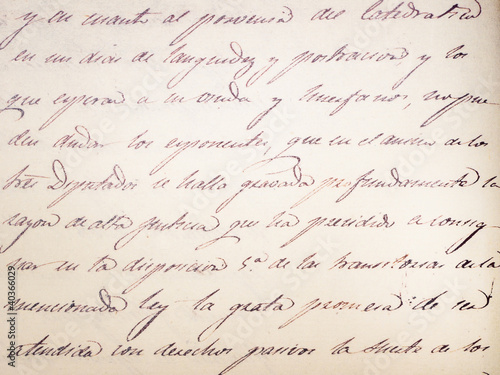 y en cuanto al porvenir del Catedratico
en sus dias de languidez y postracion y los
que esperan a su viuda y huerfanos, no pue
den dudar los esponentes, que en el animo de los
tres Diputados se halla gravada profundamente la
razon de alta justicia que ha presidido a consig-
nar en la disposicion 5.ª de las transitorias de la
mencionada Ley la grata promesa de ser
atendida con derechos pasivos la suerte de los